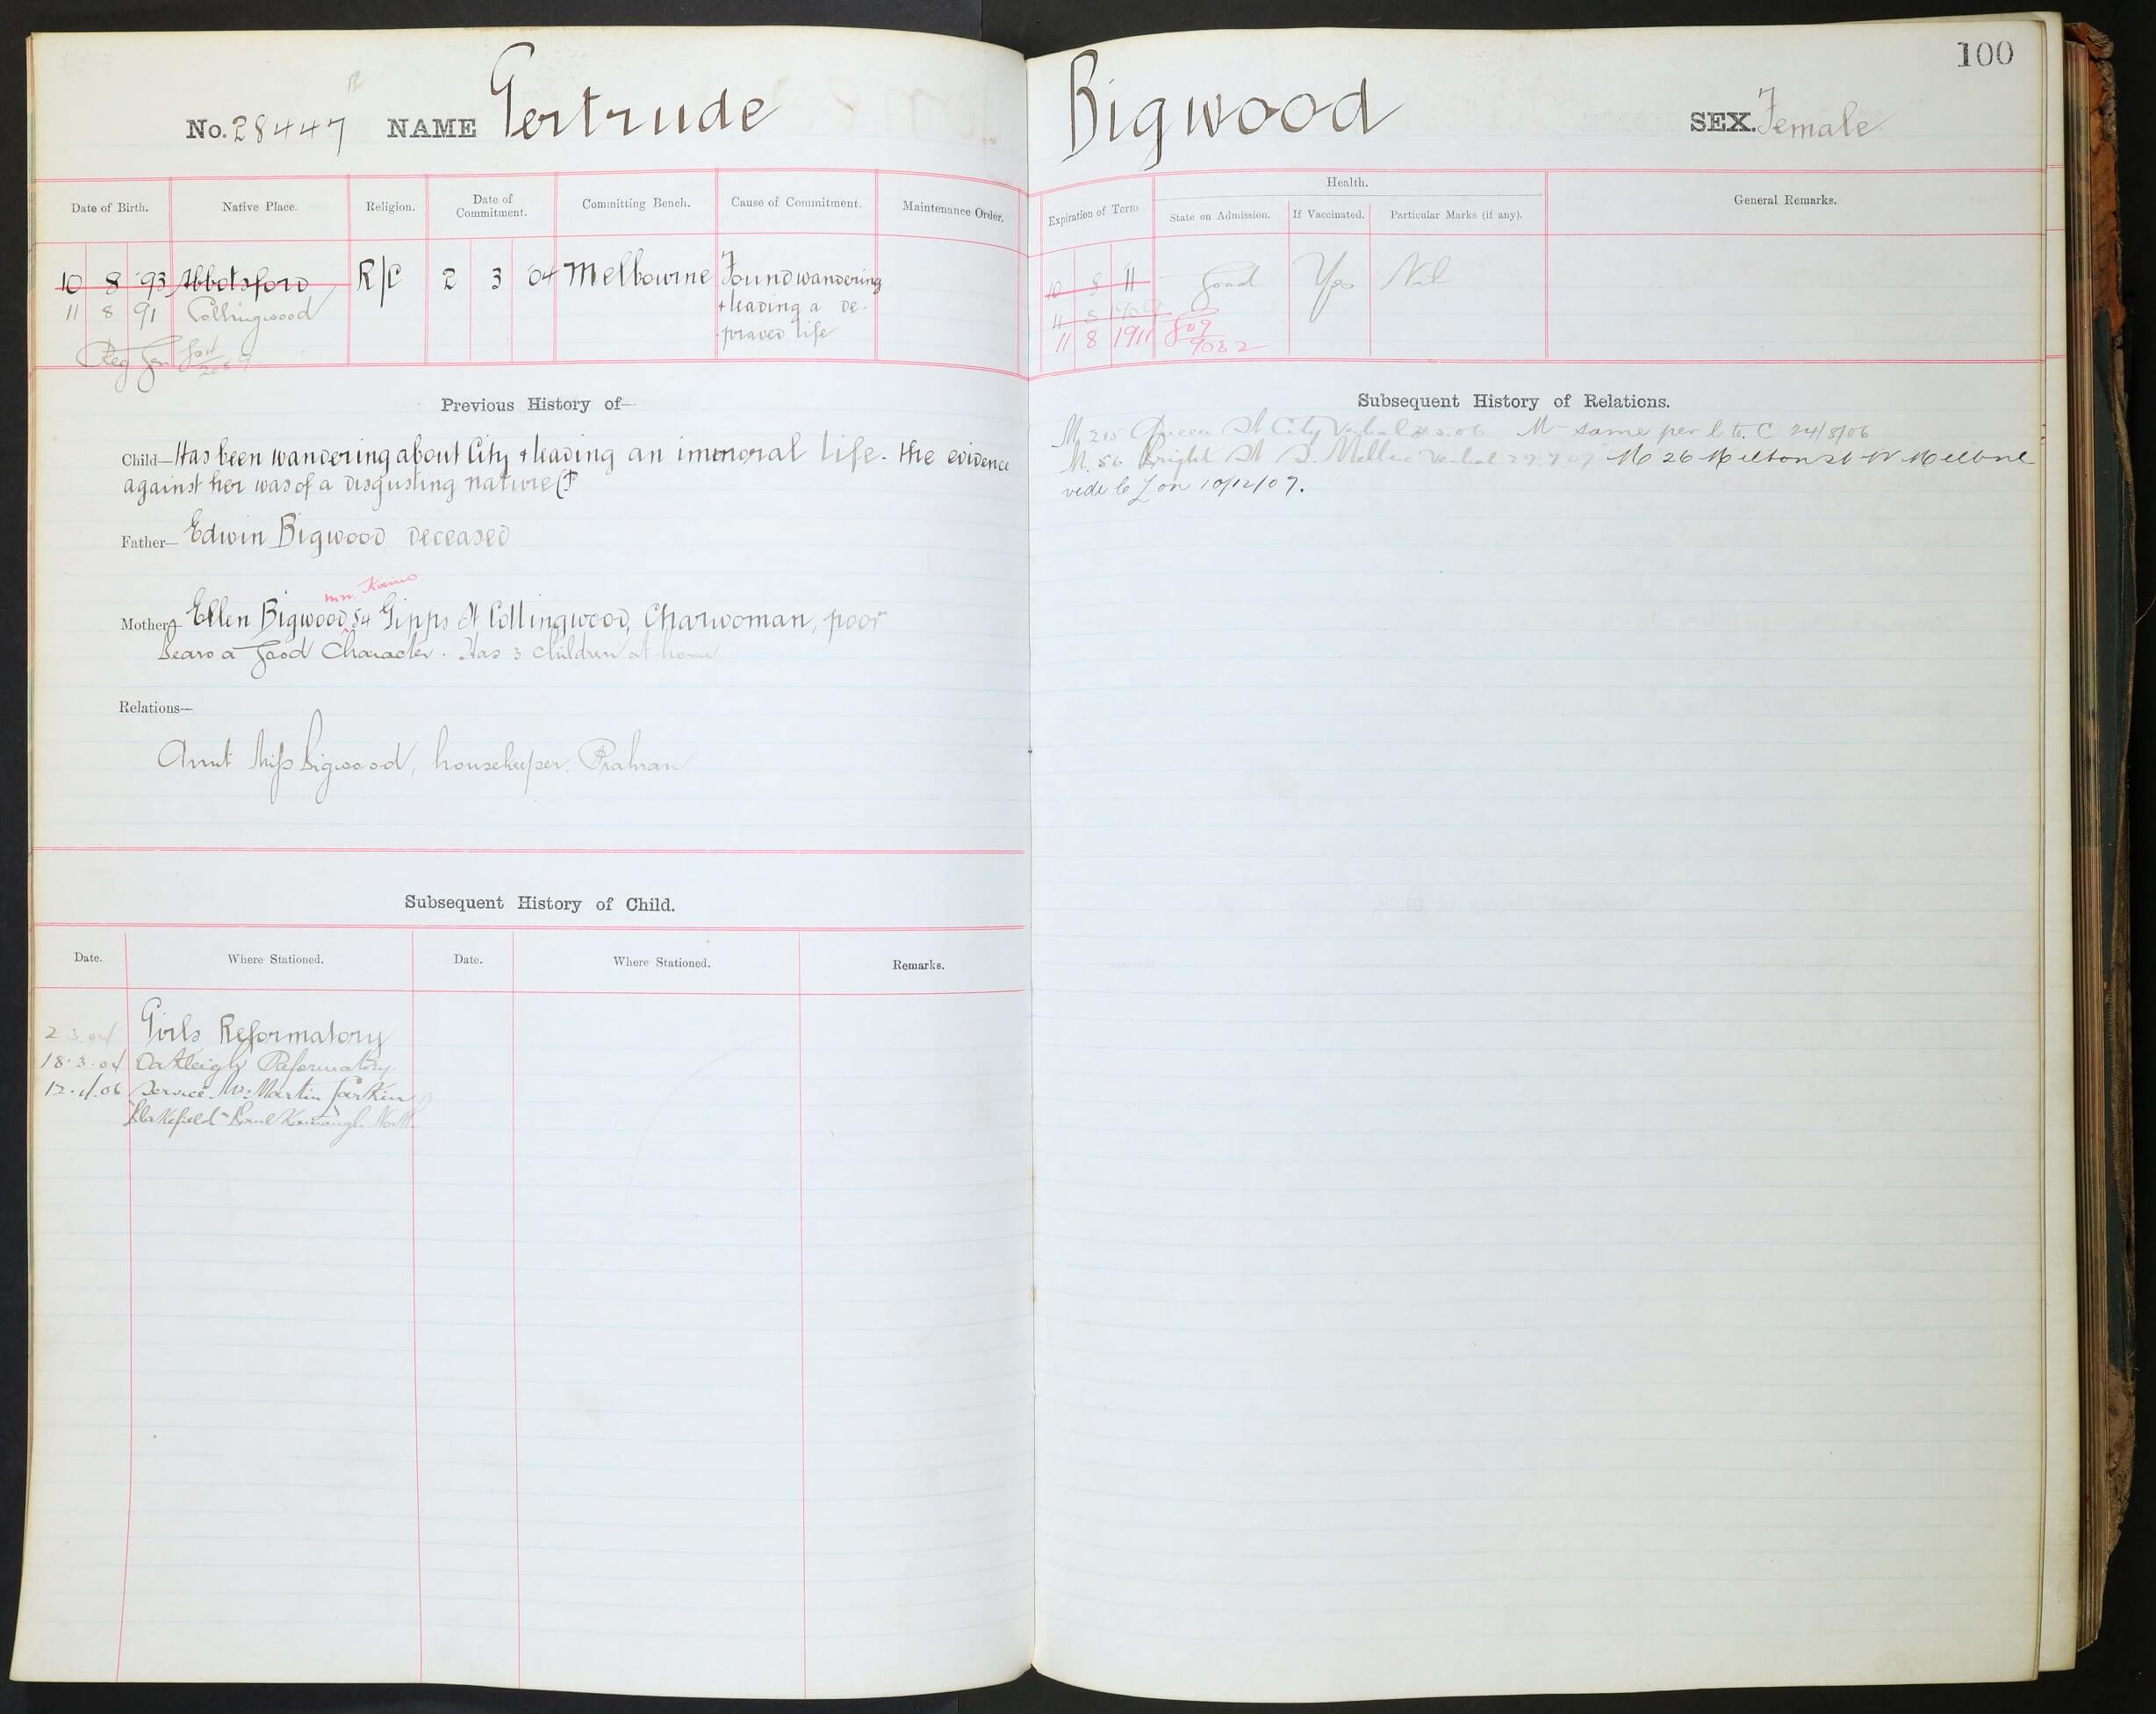 100
No. 28447 NAME Gertrude Bigwood SEX. Female
Date of Birth. Native Place. Religion. Date of Commitment. Committing Bench. Cause of Commitment. Maintenance Order. Expiration of Term. Health. General Remarks.
State on Admission. If Vaccinated. Particular Marks (if any).
10 8 93 Abbotsford R/C 2 3 04 Melbourne Found wandering 10 8 11 Good Yes Nil
11 8 91 Collingwood + leading a de- 11 8 1909
praved life 11 8 1911 J09
Reg Gen 9082
Previous History of—
Child—Has been wandering about City + leading an immoral life. The evidence
against her was of a disgusting nature
Father—Edwin Bigwood deceased
mn.
Mother—Ellen Bigwood, 54 Gipps St Collingwood, Charwoman, poor
Bears a good Character. Has 3 children at home
Relations—
Aunt Miss Bigwood, housekeeper. Prahran
Subsequent History of Child.
Date. Where Stationed. Date. Where Stationed. Remarks.
2.3.04 Girls Reformatory
18.3.04 Oakleigh Reformatory.
Service Mrs Martin
Subsequent History of Relations.
M. 215 Queen St City Verbal 5.06 M - same per l to C 24/8/06
M. 56 Bright St S. Melbne Verbal 29.7.07 M 26 Milton St W Melbne
vide on 10/12/07.